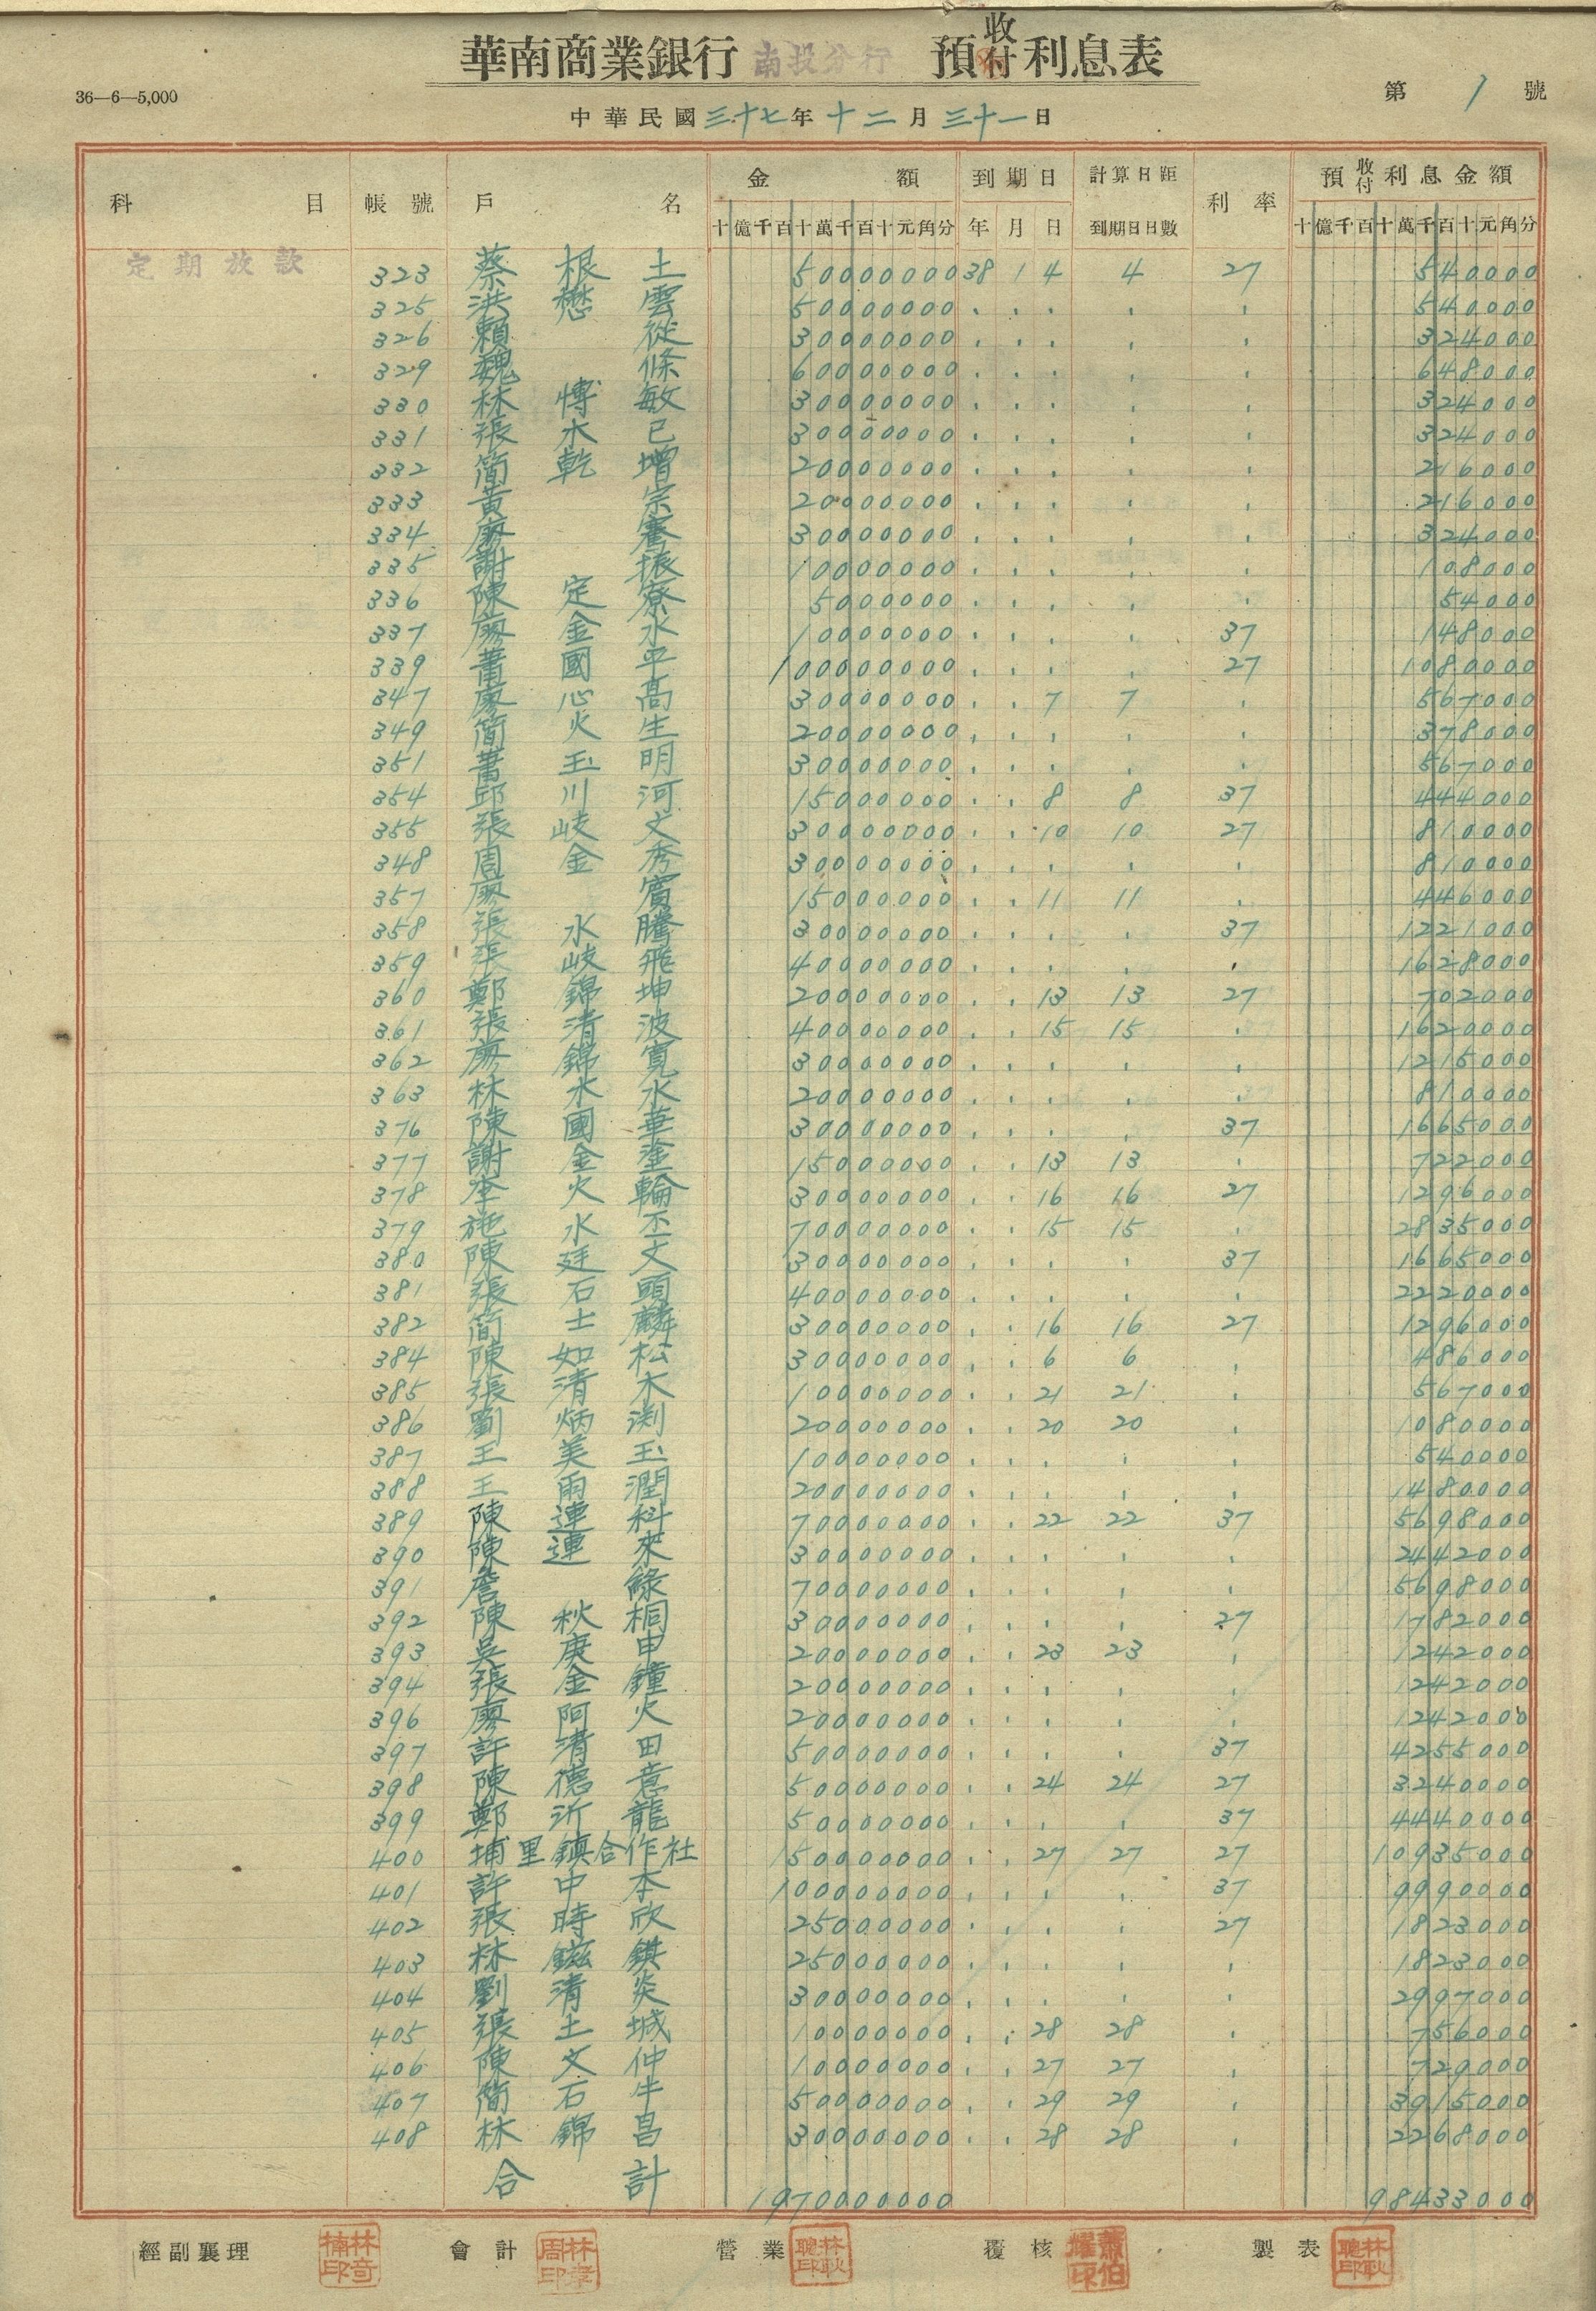 華南商業銀行 南投分行 預收付利息表
36—6—5,000
第 1 號
中華民國三十七年十二月三十一日
科目 帳號 戶名 金額 到期日 計算日距 利率 預收付利息金額
十億千百十萬千百十元角分 年 月 日 到期日日數 十億千百十萬千百十元角分
定期放款 323 蔡根土 50000000 38 1 4 4 27 540000
325 洪懋雲 50000000 . . . . . 540000
326 賴從 30000000 . . . . . 324000
329 魏條 60000000 . . . . . 648000
330 林博敏 30000000 . . . . . 324000
331 張水已 30000000 . . . . . 324000
332 簡乾增 20000000 . . . . . 216000
333 黃宗 20000000 . . . . . 216000
334 廖騫 30000000 . . . . . 324000
335 謝振 10000000 . . . . . 108000
336 陳定寮 5000000 . . . . . 54000
337 廖金水 10000000 . . . . 37 148000
339 蕭國平 100000000 . . . . 27 1080000
347 廖心高 30000000 . . 7 7 . 567000
349 簡火生 20000000 . . . . . 378000
351 蕭玉明 30000000 . . . . . 567000
354 邱川河 15000000 . . 8 8 37 444000
355 張歧文 30000000 . . 10 10 27 810000
348 周金秀 30000000 . . . . . 810000
357 廖賓 15000000 . . 11 11 . 446000
358 張水騰 30000000 . . . . 37 1221000
359 張歧飛 40000000 . . . . . 1628000
360 鄭錦坤 20000000 . . 13 13 27 702000
361 張清波 40000000 . . 15 15 . 1620000
362 廖錦寬 30000000 . . . . . 1215000
363 林水水 20000000 . . . . . 810000
376 陳國華 30000000 . . . . 37 1665000
377 謝金塗 15000000 . . 13 13 . 722000
378 李火輪 30000000 . . 16 16 27 1296000
379 施水丕 70000000 . . 15 15 . 2835000
380 陳廷文 30000000 . . . . 37 1665000
381 張石頭 40000000 . . . . . 2220000
382 簡士麟 30000000 . . 16 16 27 1296000
384 陳如松 30000000 . . 6 6 . 486000
385 張清木 10000000 . . 21 21 . 567000
386 劉炳渕 20000000 . . 20 20 . 1080000
387 王美玉 10000000 . . . . . 540000
388 王雨潤 20000000 . . . . . 1480000
389 陳連科 70000000 . . 22 22 37 5698000
390 陳連來 30000000 . . . . . 2442000
391 詹綠 70000000 . . . . . 5698000
392 陳秋桐 30000000 . . . . 27 1782000
393 吳庚申 20000000 . . 23 23 . 1242000
394 張金鐘 20000000 . . . . . 1242000
396 廖阿火 20000000 . . . . . 1242000
397 許清田 50000000 . . . . 37 4255000
398 陳德意 50000000 . . 24 24 27 3240000
399 鄭沂龍 50000000 . . . . 37 4440000
400 埔里鎮合作社 150000000 . . 27 27 27 10935000
401 許中本 100000000 . . . . 37 9990000
402 張時欣 25000000 . . . . 27 1823000
403 林鎡錤 25000000 . . . . . 1823000
404 劉清炎 30000000 . . . . . 2997000
405 張土城 10000000 . . 28 28 . 756000
406 陳文仲 10000000 . . 27 27 . 729000
407 簡石牛 50000000 . . 29 29 . 3915000
408 林錦昌 30000000 . . 28 28 . 2268000
合計 1970000000 98433000
經副襄理 會計 營業 覆核 製表